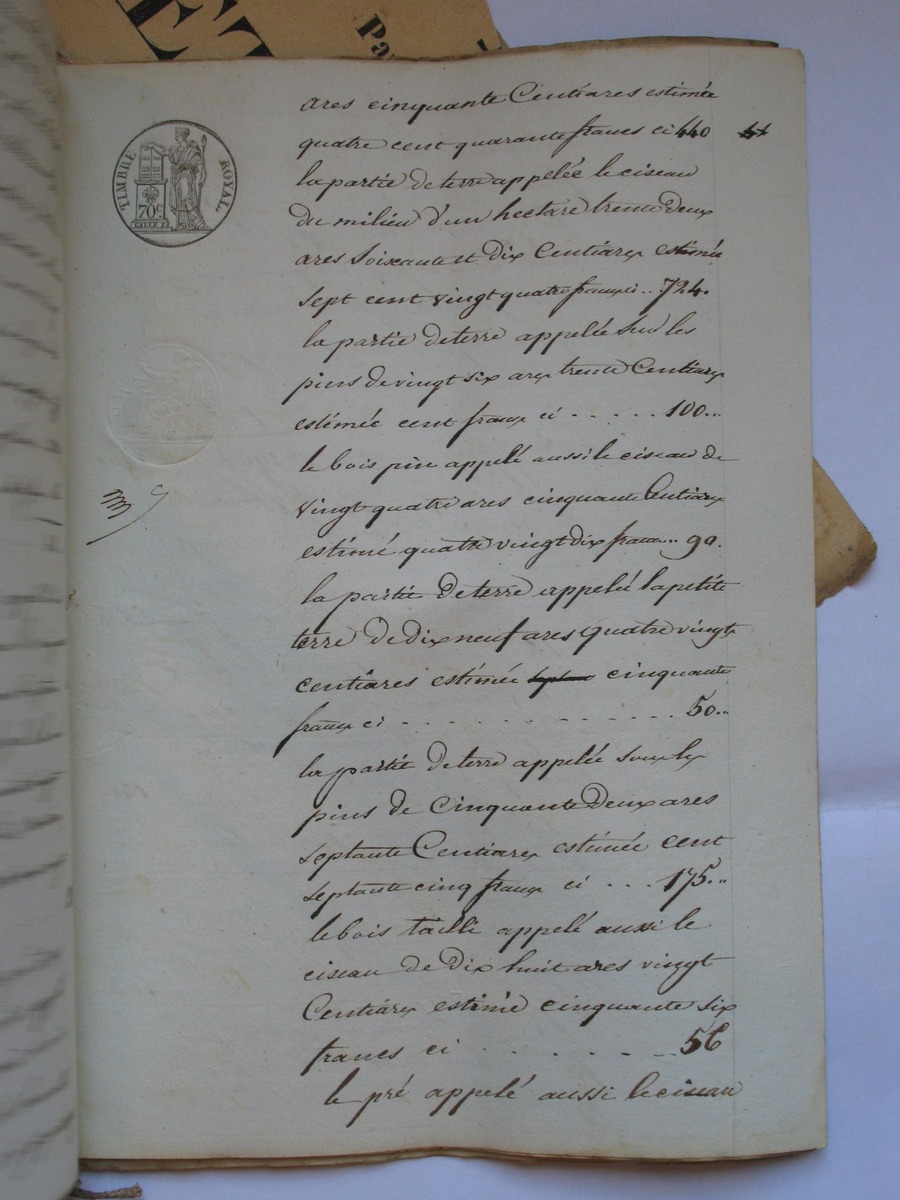 ET
Pa
TIMBRE ROYAL
70c
ares cinquante Centiares estimée
quatre cent quarante francs ci 440
la partie de terre appelée le ciseau
du milieu d'un hectare trente deux
ares soixante et dix Centiares estimée
sept cent vingt quatre francs ci .. 724.
la partie de terre appelée sur les
pins de vingt six ares trente Centiares
estimée cent francs ci . . . . . 100...
le bois pin appelé aussi le ciseau de
vingt quatre ares cinquante Centiares
estimé quatre vingt dix francs ... 90.
la partie de terre appelée la petite
terre de dix neuf ares quatre vingt
centiares estimée cinquante
francs ci . . . . . . . . . . . . . . 50...
la partie de terre appelée sous les
pins de Cinquante Deux ares
septante Centiares estimée cent
septante cinq francs ci . . . 175...
le bois tailli appelé aussi le
ciseau de dix huit ares vingt
Centiares estimé cinquante six
francs ci . . . . . . . 56
le pré appelé aussi le ciseau